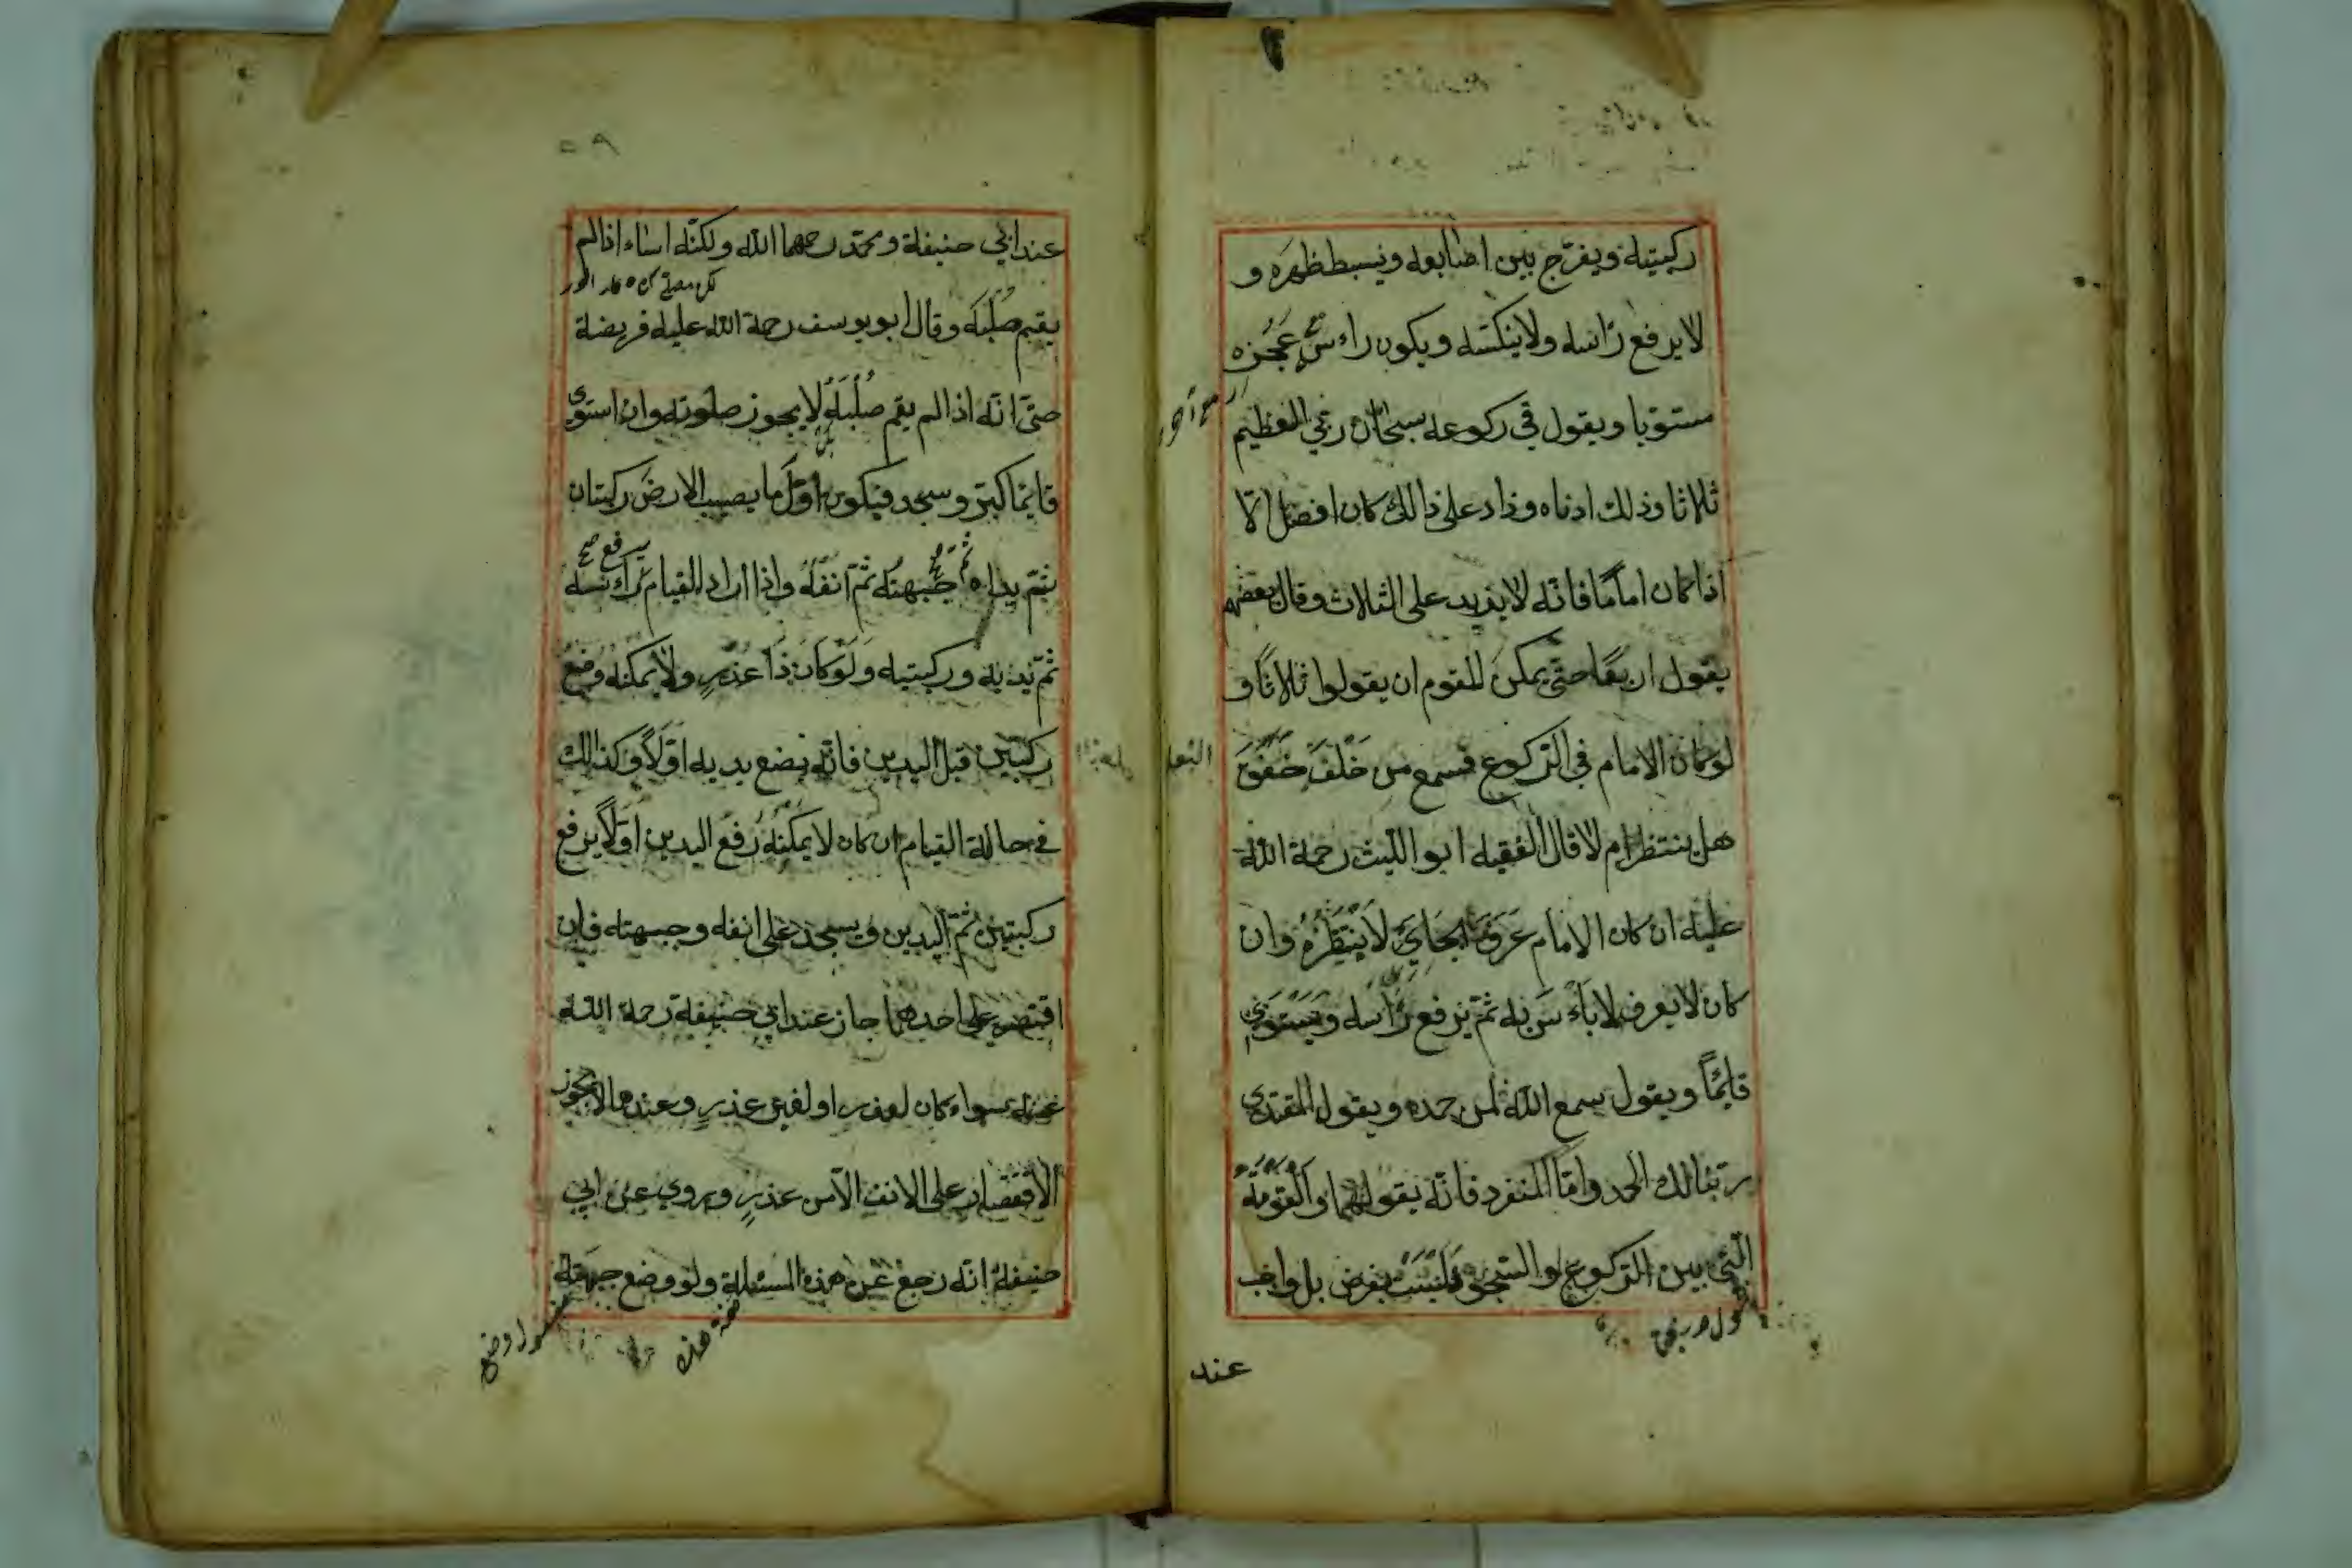 ركبتيه ويفرّج بين اصابعه ويبسط ظهره و
لا يرفع راسه ولا ينكسه ويكون راءس عجزه
مستويا ويقول في ركوعه سبحان ربي العظيم
ثلاثا وذلك ادناه وزاد على ذالك كان افضل الّا
اذا كان اماما فانّه لا يزيد على الثلاث وقال بعضهم
يقول اربعًا حتى يمكن للقوم ان يقولوا ثلاثًا و
لو كان الامام في الركوع فسمع من خلف خفق
النعل
هل ينتظر ام لا قال الفقيه ابو الليث رحمة الله
عليه ان كان الامام عرف الجاي لا ينتظره وان
كان لا يعرف لا باءس به ثمّ يرفع راسه ويستوي
قايمًا ويقول سمع الله لمن حمده ويقول المقتدى
ربّنا لك الحمد وامّا المنفرد فانّه يقولهما والقومة
الّتي بين الركوع والسجود ليست بفرض بل واجب
عند
٥٨
عند ابي حنيفة ومحمّد رحمهما الله ولكنّه اساء اذا لم
يقم صلبه وقال ابو يوسف رحمة الله عليه فريضة
حتّى انّه اذا لم يقم صلبه لا يجوز صلوته وان استوى
قايمًا كبّر وسجد فيكون اوّل ما يصيب الارض ركبتان
ثمّ يداه ثم جبهته ثمّ انفه واذا اراد القيام يرفع راسه
ثمّ يديه وركبتيه ولو كان ذا عذر ولا يمكنه وضع
ركبتين قبل اليدين فانّه يضع يديه اوّلًا وكذالك
في حالة القيام ان كان لا يمكنه رفع اليدين اوّلًا يرفع
ركبتين ثمّ اليدين ويسجد على انفه وجبهته فان
اقتصر على احدهما جاز عند ابي حنيفة رحمة الله
عليه سواء كان لعذر او لغير عذر وعندهما لا يجوز
الاقتصار على الانف الّا من عذر ويروي عن ابي
حنيفة انّه رجع عن هذه المسئلة ولو وضع جبهته